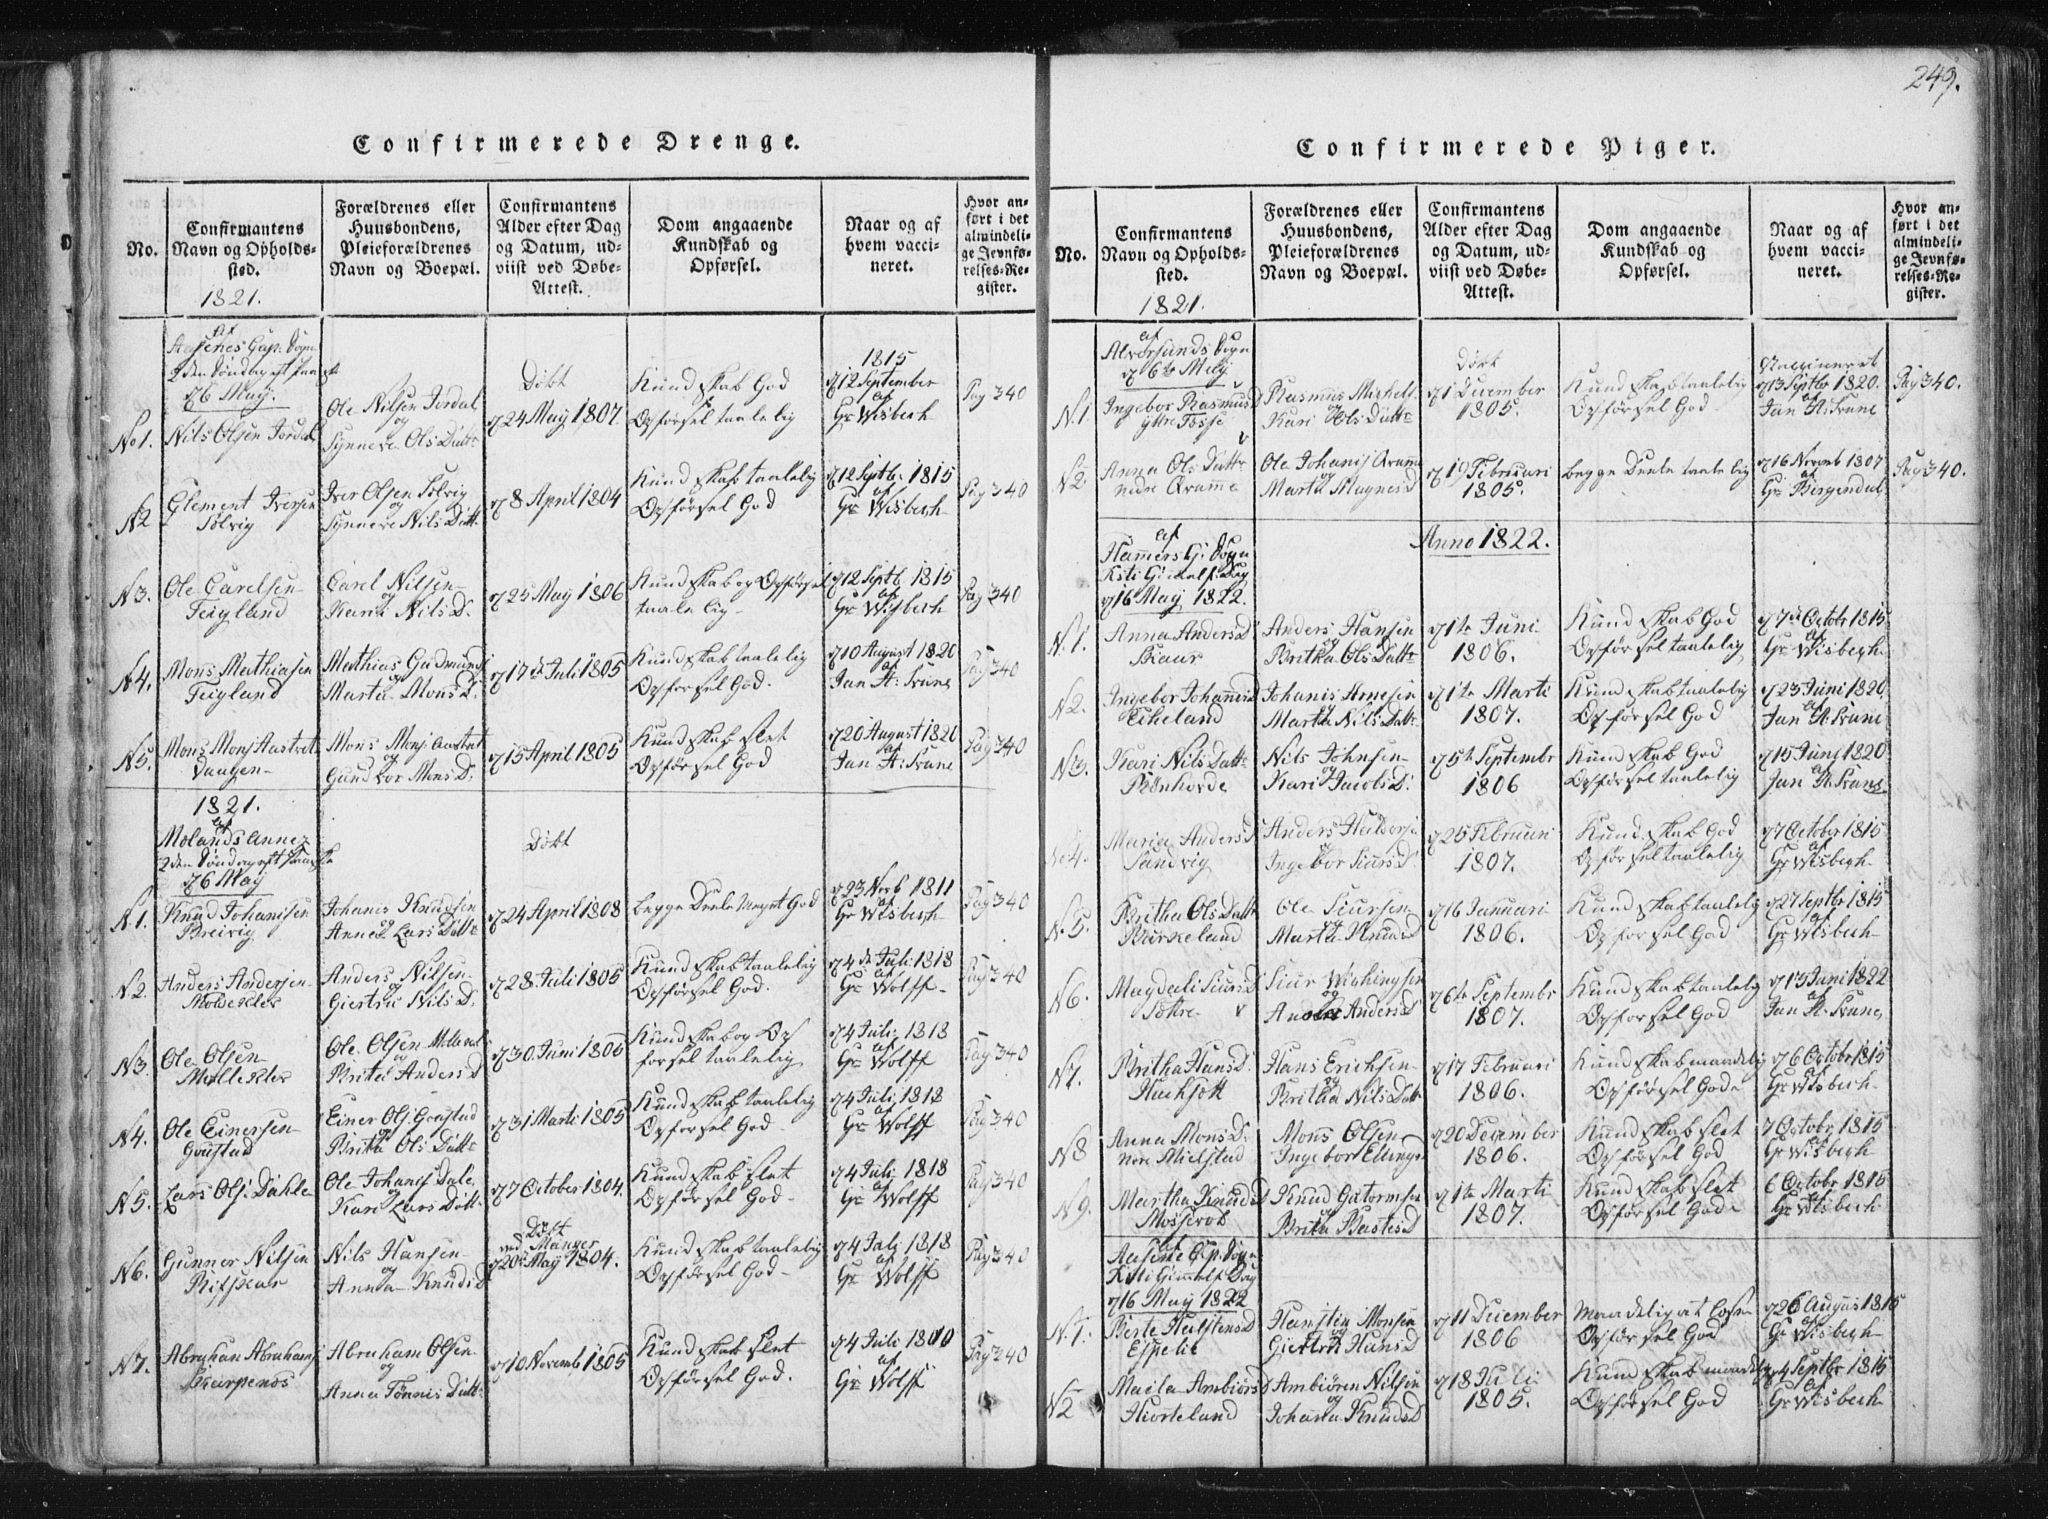 249.
Confirmerede Drenge.
No.
Confirmantens
Navn og Opholds-
sted.
1821.
Forældrenes eller
Huusbondens,
Pleieforældrenes
Navn og Boepæl.
Confirmantens
Alder efter Dag
og Datum, ud-
viist ved Døbe-
Attest.
Dom angaaende
Kundskab og
Opførsel.
Naar og af
hvem vacci-
neret.
Hvor an-
ført i det
almindeli-
ge Jevnfø-
relses-Re-
gister.
af
2den Søndag eft
d 6 May.
No 1.
Nils Olsen Jordal
Ole Nilsen Jordal
og
Synneve Ols Datt:
Døbt
d 24 May 1807.
Kundskab God
Opførsel taalelig
1815
d 12 September
af
Gr: Wisbech
Pag 340
N2
Clement Iversen
Solvig
Iver Olsen Solvig
og
Synneve Nils Datt:
d 8 April 1804
Kundskab taalelig
Opførsel God
d 12 Septbr 1815
af
Gr Wisbech
Pag 340
N3.
Ole Carelsen
Teigland
Carel Nilsen
og
Kari Nils D:
d 25 May 1806
Kundskab og Opførsel
taalelig
d 12 Septb. 1815
af
Gr Wisbech
Pag 340
N4.
Mons Mathiasen
Teigland
Mathias Gudmunds
og
Marta Mons D:
d 17de Juli 1805
Kundskab taalelig
Opførsel God.
d 10 August 1820
af
Jan A: Trane
Pag 340
N5.
Mons Monsen
Vaagen
Mons Mons
og
Gundbor Mons D:
d 15 April 1805
Kundskab slet
Opførsel God
d 20 August 1820
af
Jan A: Trane
Pag 340
1821.
af
Molands Annex
2den Søndag eft Paaske
d 6 May
Døbt
N1.
Knud Johanisen
Breivig
Johanis Knudsen
og
Anne Lars Datt:
d 24 April 1808
begge Deele meget God
d 23 Novb 1811
af
Gr Wisbech
Pag 340
N2.
Anders Andersen
Moldekler
Anders Nilsen
og
Giertrue Nils D:
d 28 Juli 1805
Kundskab taalelig
Opførsel God.
d 4de Juli 1818
af
Gr Wolff
Pag 340
N3.
Ole Olsen
Mollekler
Ole Olsen
og
Brita Anders D
d 30 Juni 1805
Kundskab og Op
forsel taalelig
d 4 Juli 1818
af
Gr Wolff
Pag 340
N4.
Ole Einersen
Einer Ols:
og
Brita Ols Datt:
d 31 Marti 1805
Kundskab taalelig
Opførsel God
d 4 Juli 1818
af
Gr Wolff
Pag 340
N5.
Lars Ols: Dahle
Ole Johans Dale
og
Kari Lars Datt:
d 7 October 1804.
Kundskab slet
Opførsel God
d 4 Juli 1818
af
Gr Wolff
Pag 340
N6.
Gunner Nilsen
Ritskar
Nils Hansen
og
Anna Knuds D
Døbt
ved Manger
d 20 May 1804.
Kundskab taalelig
Opførsel God
d 4 Juli 1818
af
Gr Wolff
Pag 340
N7.
Abraham Abrahams
Skarpenos
Abraham Olsen
og
Anna Tønnis Datt:
d 10 Novemb 1805
Kundskab slet
Opførsel God.
d 4 Juli 1810
af
Gr Wolff
Pag 340
Confirmerede Piger.
No.
Confirmantens
Navn og Opholds-
sted.
1821.
Forældrenes eller
Huusbondens,
Pleieforældrenes
Navn og Boepæl.
Confirmantens
Alder efter Dag
og Datum, ud-
viist ved Døbe-
Attest.
Dom angaaende
Kundskab og
Opførsel.
Naar og af
hvem vacci-
neret.
Hvor an-
ført i det
almindeli-
ge Jevnfø-
relses-Re-
gister.
af
Alversunds Sogn
d 6te May
N.1.
Ingebor Rasmus D
Yttre Fosse
Rasmus Michels
og
Kari Ols Datt:
Døbt
d 1 December
1805.
Kundskab taalelig
Opførsel God
Vaccineret
d 13 Septbr 1820.
af
Jan A: Trane
Pag 340.
N2.
Anna Ols Datt:
nedre Qvamme
Ole Johanis Qvamme
og
Marta Magnes D
d 19 Februari
1805.
begge Deele taalelig
d 16 Novemb 1807
af
Gr: Birgendal
Pag 340.
Anno 1822.
af
Hamers G: Sogn
Kristi Himmelf: Dag
d 16 May 1822.
N.1.
Anna Anders D
Anders Hansen
og
Britha Ols Datt:
d 1te Juni
1806.
Kundskab God
Opførsel taalelig
d 7de Octobr 1815
af
Gr: Wisbech
N2.
Ingebor Johanis D
Eikeland
Johanis Arnesen
og
Marta Nils Datt:
d 1te Marti
1807.
Kundskab taalelig
Opførsel God
d 23 Juni 1820
af
Jan A. Trane
N3.
Kari Nils Datt:
Rønhovde
Nils Johnsen
og
Kari Jacobs D:
d 5te Septembr
1806
Kundskab God
Opførsel taalelig
d 15 Juni 1820
af
Jan A. Trane
N 4.
Maria Anders D
Sandvig
Anders Haldorsen
og
Ingebor Siurs D
d 25 Februari
1807.
Kundskab God
Opførsel taalelig
d 7 October 1815
af
Gr Wisbech
N.5.
Britha Ols Datt:
Birkeland
Ole Siursen
og
Marta Knuds D
d 16 Januari
1806.
Kundskab taalelig
Opforsel God
d 27 Septbr 1815
af
Gr Wisbech
N6.
Magdeli Siurs D
Siur
og
Anders D
d 6te Septembr
1807.
Kundskab taalelig
Opforsel God
d 13 Juni 1822
af
Jan A. Trane
N7.
Britha Hans D.
Hans Erichsen
og
Britha Nils Datt
d 17 Februari
1806.
Kundskab maadelig
Opførsel God
d 6 Octobr 1815
af
Gr Wisbech
N8
Anna Mons D:
nere Mielstad
Mons Olsen
og
Ingebor Ellings
d 20 December
1806.
Kundskab slet
Opførsel God
7 Octobr 1815
af
Gr Wisbech
N9.
Martha Knuds D
Mosserok
Knud Gutormsen
og
Brita Baates D
d 1te Marti
1807.
Kundskab slet
Opførsel God
6 Octobr 1815
af
Gr Wisbech
af
Kristi Himmelf: Dag
d 16 May 1822
N1.
Berte Halstens D
Espelie
Halsten Monsen
og
Giertru Hans D
d 11 December
1806
Opførsel God
d 26 August 1815
af
Gr Wisbech
N2
Maila Ambiørs D
Hiorteland
Ambiøren Nilsen
og
Johanna Knuds D
d 18 Juli
1805.
Kundskab maadelig
Opførsel God
d 4 Septbr 1815
af
Gr Wisbech